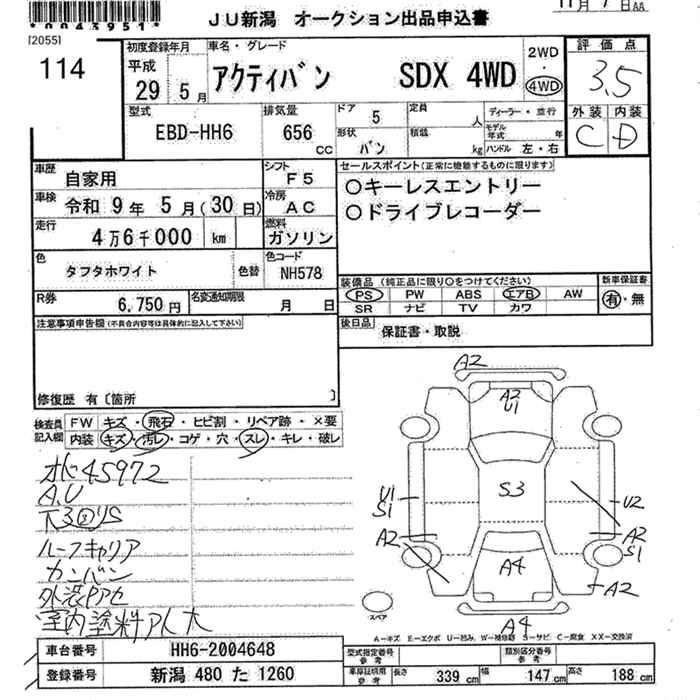 *0043951*
JU新潟 オークション出品申込書
[2055]
114
初度登録年月
平成
29 5 月
車名・グレード
アクティバン SDX 4WD
2WD
4WD
評価点
3.5
外装 内装
C D
型式
EBD-HH6
排気量
656 cc
ドア
5
形状
バン
定員
人
積載
kg
ディーラー・並行
モデル年式 年
ハンドル 左・右
車歴
自家用
シフト
F5
車検
令和 9年 5月(30日)
冷房
AC
走行
4万6千000 km
燃料
ガソリン
色
タフタホワイト
色替
色コード
NH578
R券
6,750円
名変通知期限
月 日
セールスポイント(正常に機能するものに限ります)
○キーレスエントリー
○ドライブレコーダー
装備品 (純正品に限り○をつけてください)
PS PW ABS エアB AW
SR ナビ TV カワ
新車保証書
有・無
後日品
保証書・取説
注意事項申告欄(不具合内容等は具体的に記入して下さい)
修復歴 有〔箇所 〕
検査員記入欄
FW キズ・飛石・ヒビ割・リペア跡・×要
内装 キズ・汚レ・コゲ・穴・スレ・キレ・破レ
45972
A.U
ルーフキャリア
カンバン
室内塗料アト大
A2
A2
U1
S3
U1
S1
A2
U2
A2
S1
A4
A2
A4
スペア
A-キズ E-エクボ U-凹み W-補修跡 S-サビ C-腐食 XX-交換済
車台番号
HH6-2004648
登録番号
新潟 480 た 1260
型式指定番号
参考
類別区分番号
参考
車庫証明用
参考
長さ 339 cm 幅 147 cm 高さ 188 cm